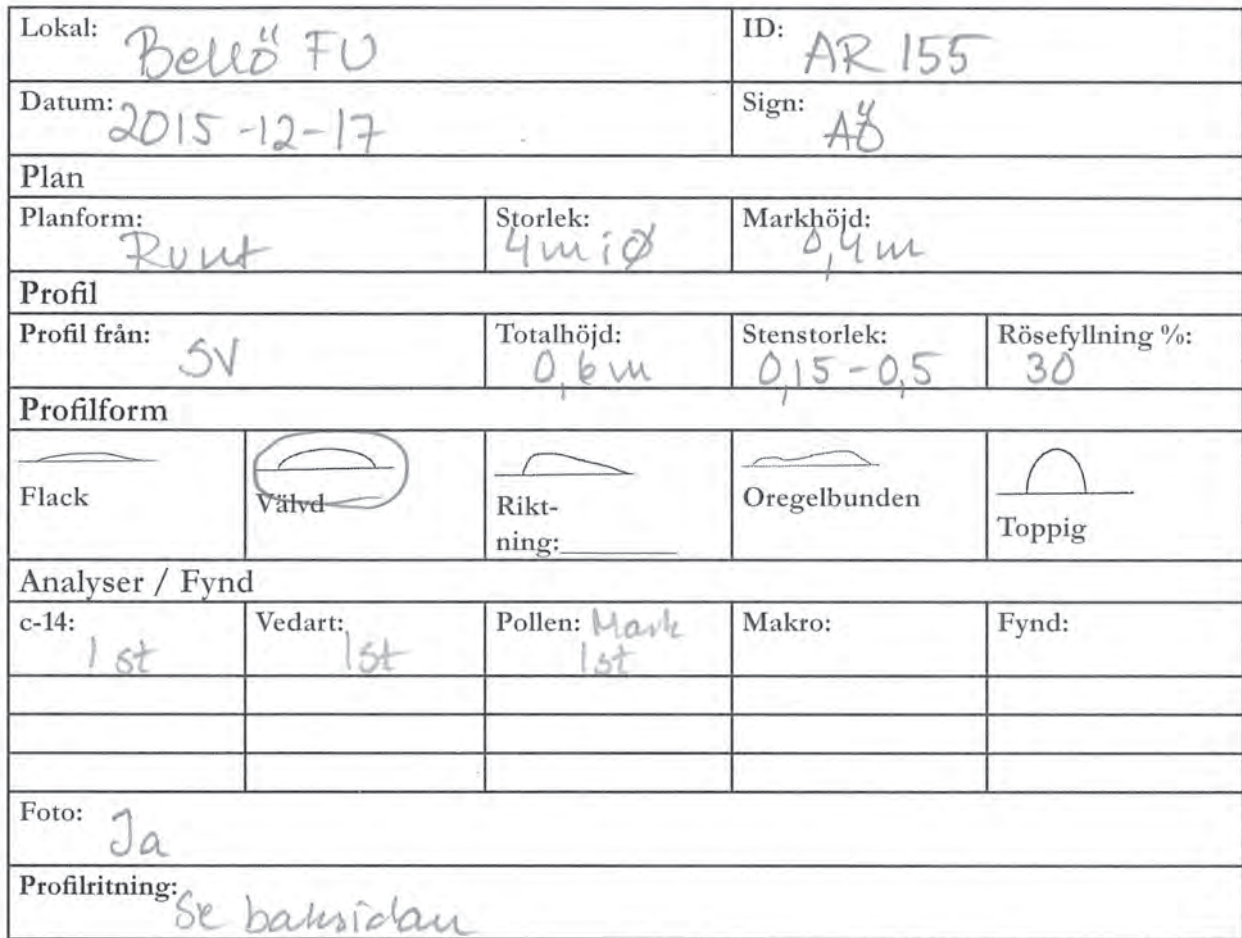 Lokal: Bellö FU
ID: AR 155
Datum: 2015-12-17
Sign: AÖ
Plan
Planform: Runt
Storlek: 4 m i Ø
Markhöjd: 0,4 m
Profil
Profil från: SV
Totalhöjd: 0,6 m
Stenstorlek: 0,15-0,5
Rösefyllning %: 30
Profilform
Flack
Välvd
Rikt-
ning:
Oregelbunden
Toppig
Analyser / Fynd
c-14: 1 st
Vedart: 1 st
Pollen: Mark
1 st
Makro:
Fynd:
Foto: Ja
Profilritning: Se baksidan